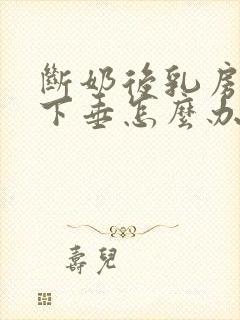 斷奶後乳房
下垂怎麼办
壽兒